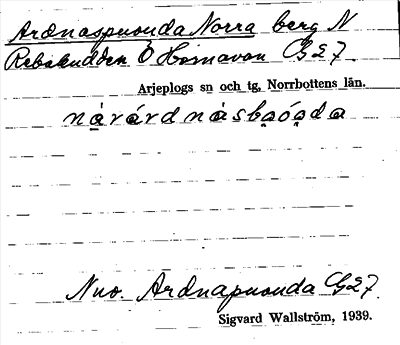 Ardnaspuouda Norra berg N
Rebakudden Ö Hornavan G27.
Arjeplogs sn och tg, Norrbottens län.
nạ́rárdnásbạóạda
Nuv. Ardnapuouda G27.
Sigvard Wallström, 1939.